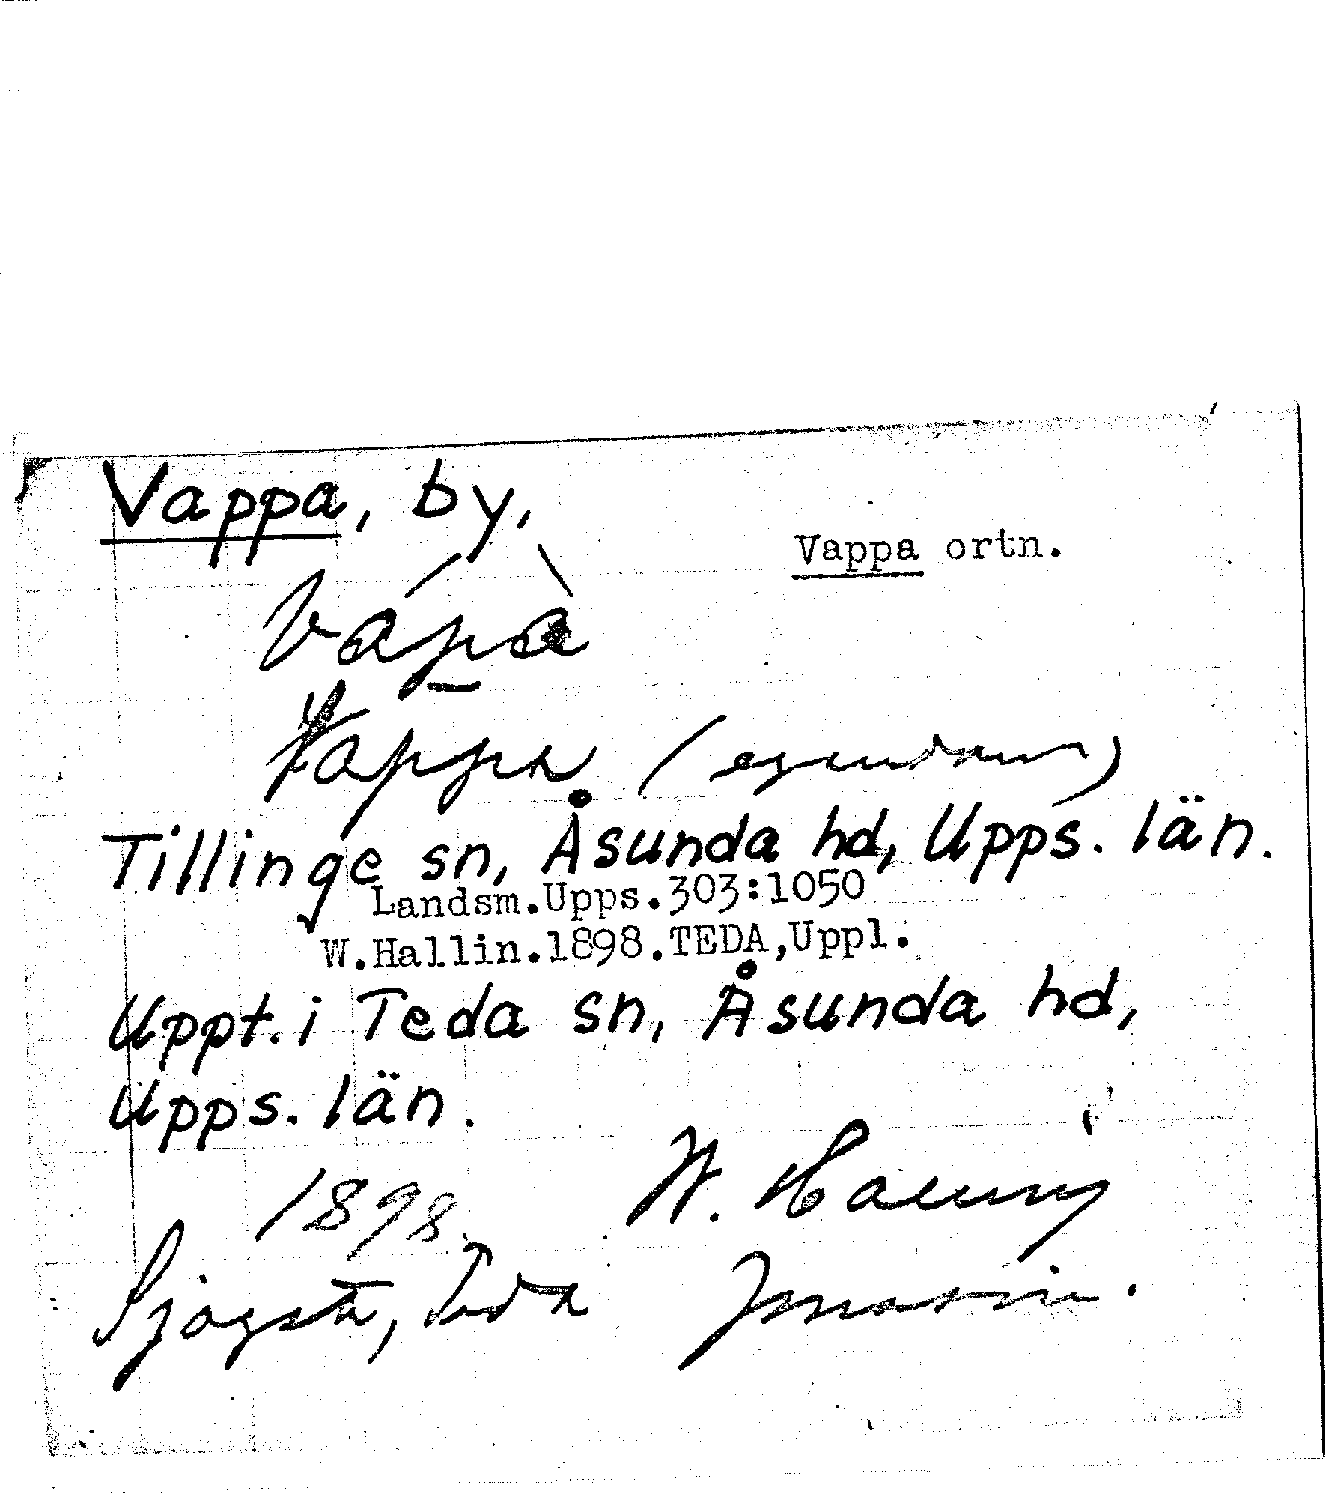 Vappa, by,
Vappa ortn.
Vápà
Vappa (egendom)
Tillinge sn, Åsunda hd, Upps. län.
Landsm.Upps.303:1050
W.Hallin.1898.TEDA,Uppl.
Uppt. i Teda sn, Åsunda hd,
Upps. län.
1898. W.
Teda